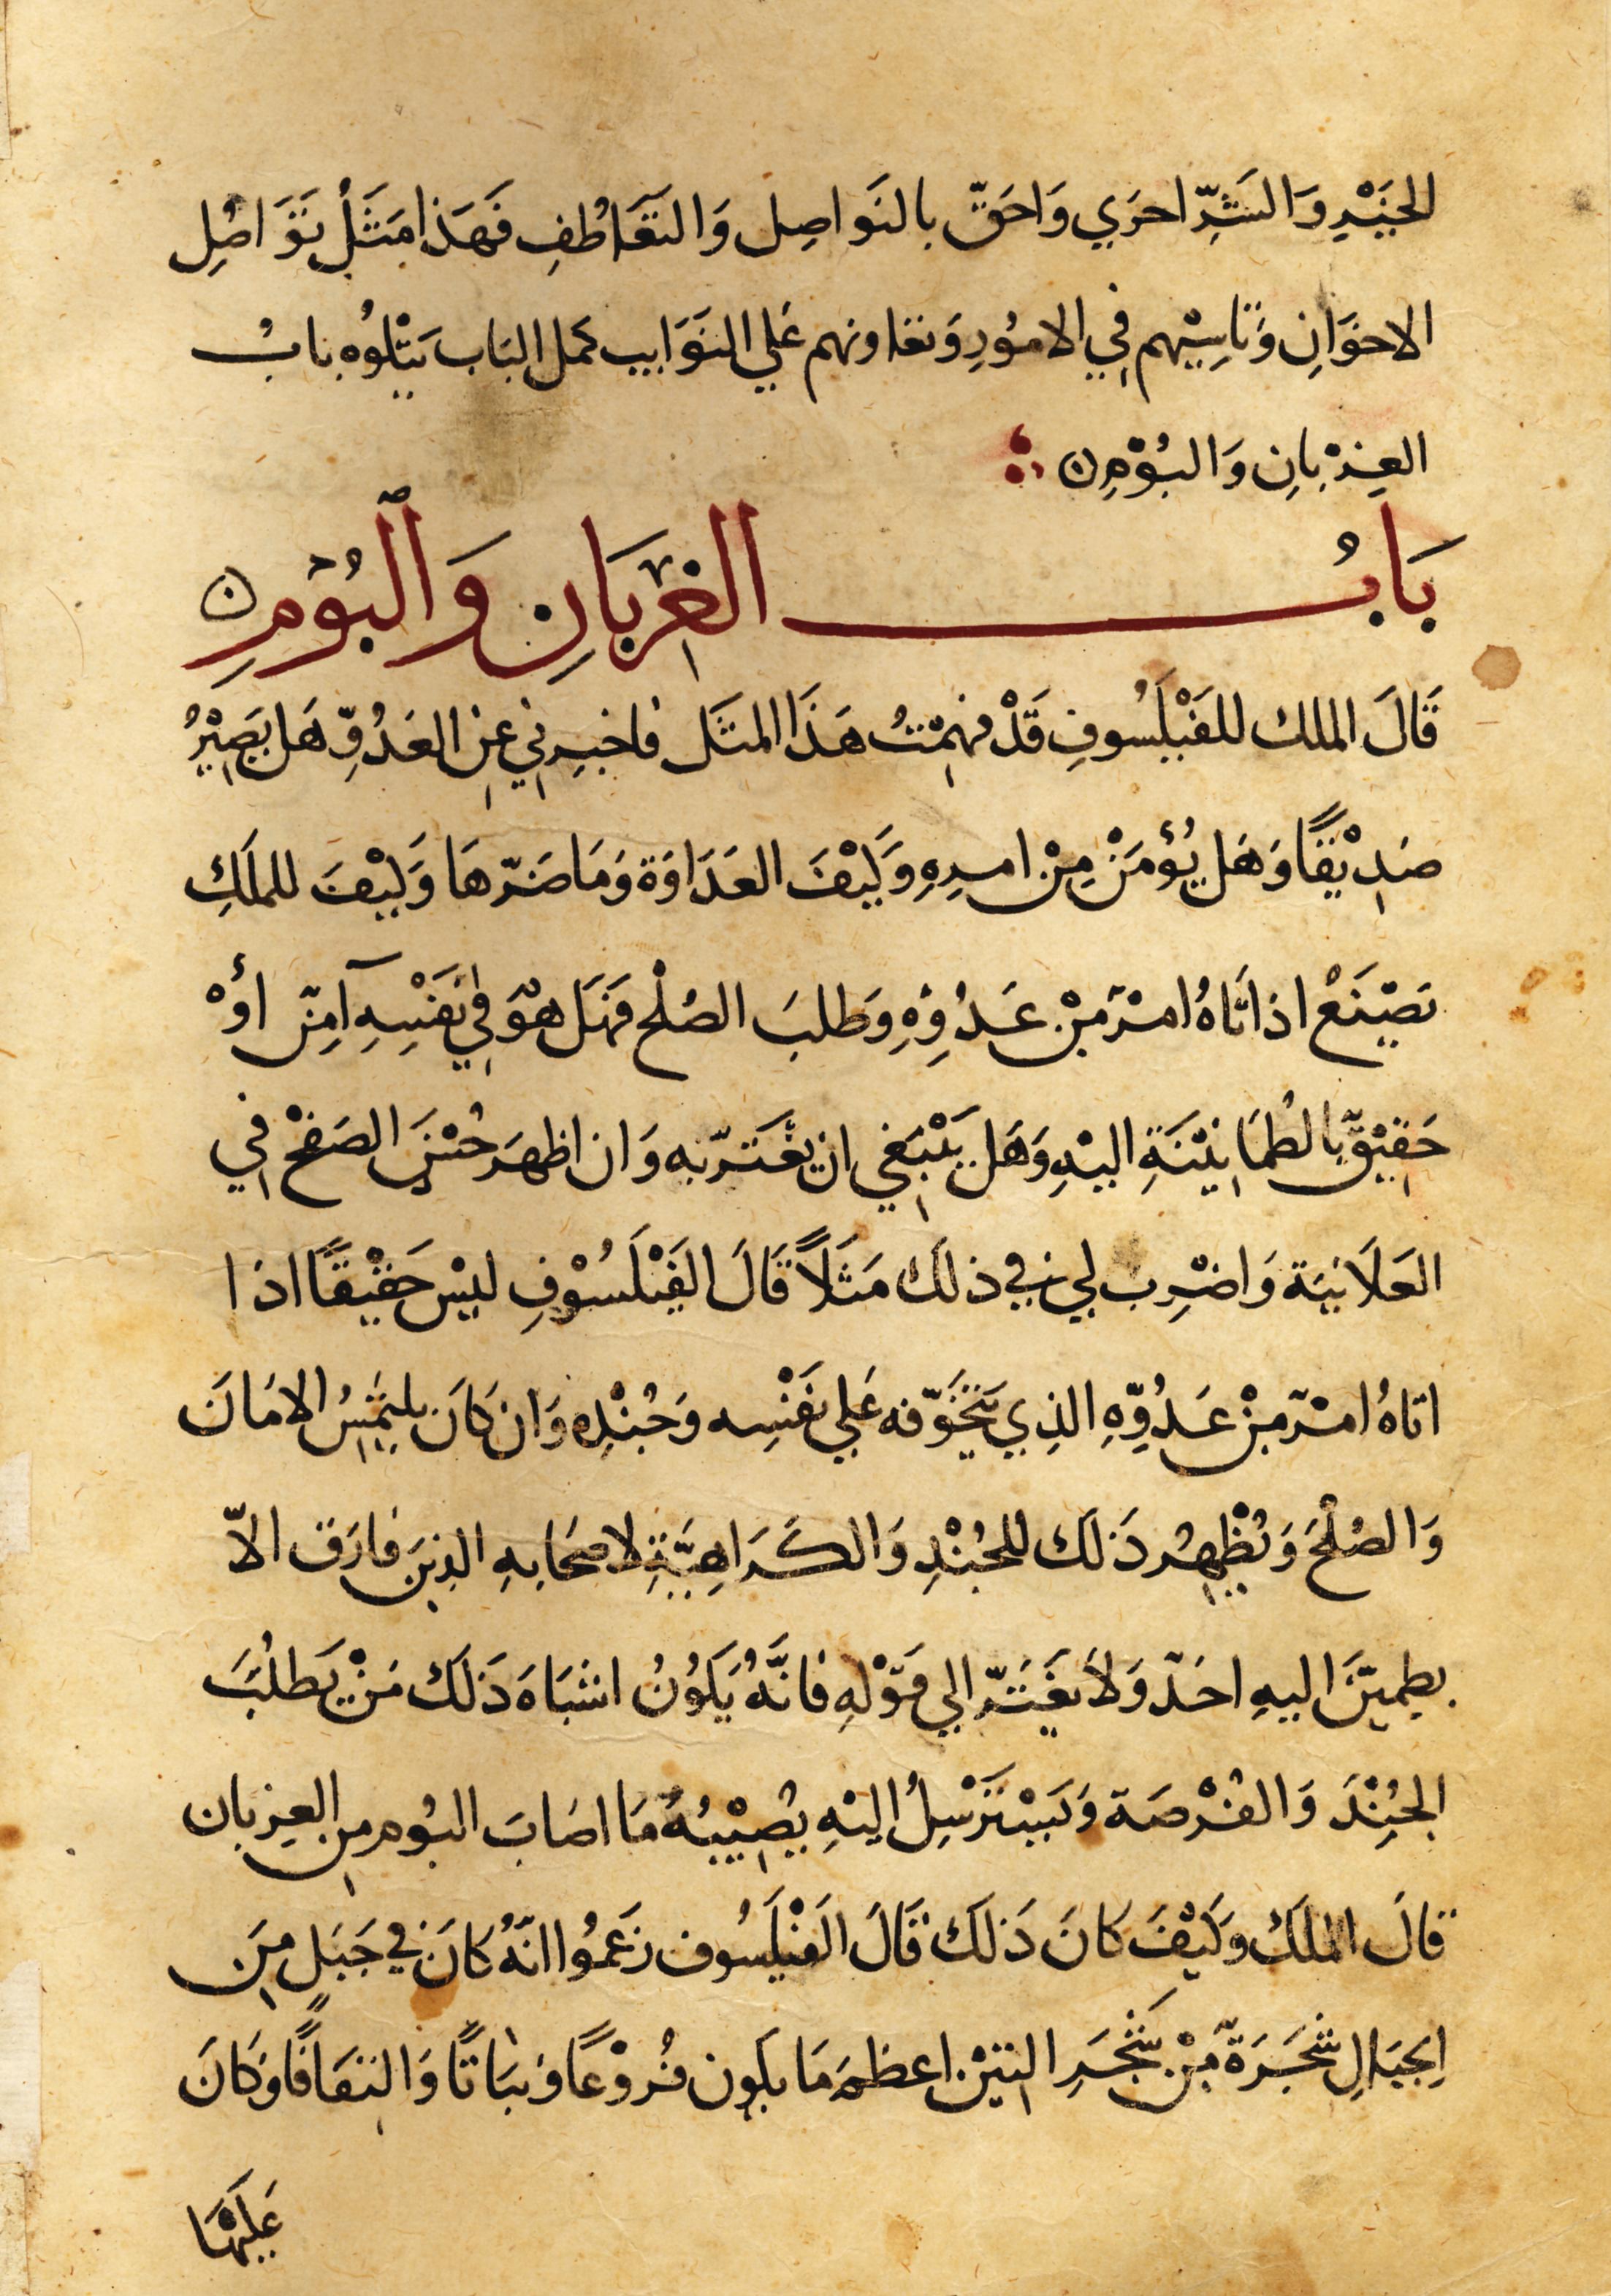 الخَيْرِ وَالشَرِّ احرَي وَاحَقّ بالتَواصِل وَالتعَاطُفِ فَهَذا مَثَلُ تَوَاصُلِ
الاخوَانِ وَتَاسِيْهم فِي الامُورِ وَتعاونهم عَلي النَوَايب كمل البَاب يَتْلوُه بابُ
الغِرْبانِ وَالبُوْمِ ن
بَابُ الغِرْبَانِ وَالبُوْمِ ن
قَالَ الملك للفَيْلَسُوفِ قَدْ فهِمْتُ هَذَا المثَل فاخبِرنِي عِن العَدُوِّ هَل يَصِيْرُ
صَدِيْقًا وَهَل يُؤمَنْ مِنْ امرِهِ وَكَيْفَ العَدَاوَة وَمَا ضَرّهَا وَكيْفَ للملَكِ
يَصْنَعْ اذا اتَاهُ امرٌ مِنْ عَدُوِّهِ وَطلبَ الصُلْح فهَل هُوَ فِي نَفْسِهِ آمِنٌ أوْ
حَقِيْقٌ بِالطُمَانِيْنَةِ اليْهِ وَهَل يَنْبَغِي ان يغْتَرّ به وَان اظهَر حُسْنَ الصَفْحْ فِي
العَلَانيَة وَاضْرِب لي في ذلكَ مَثَلاً قَالَ الفَيْلَسُوْفِ ليْس حَقيْقًا اذا
اتاهُ امْرٌ مِنْ عَدُوِّهِ الذِي يَتَخَوَّفه عَلي نَفْسِه وَجُنْدِه وَان كَانَ يلتَمِسُ الامَانَ
وَالصُلْحَ وَيُظْهِرُ ذَلكَ للجُنْدِ وَالكَرَاهِيَّةِ لاصحَابهِ الذِينَ فارَق الاّ
يطمِيّنَ اليهِ احَدٌ وَلَا يَغْتَرّ الي قَوْلهِ فانَّهُ يَكُوْنُ اشبَاهَ ذَلكَ مَنْ يَطلُبَ
الجُنْدَ وَالفُرْصَة وَيَسْتَرْسِلُ اليْهِ يُصِيْبُهُ مَا اصَابَ البُوم مِن الغِربان
قالَ الملَكْ وَكَيْفَ كانَ ذَلكَ قَالَ الفَيْلَسُوف زَعَمُوا انّهُ كانَ في جَبَلٍ مِنَ
الجبَالِ شجَرَةٌ مِنْ شجَرِ التِيْن اعظمَ مَا يكُون فُرُوْعًا وَنبَاتًا وَالتفَافًا وَكَانَ
عَليْهَا